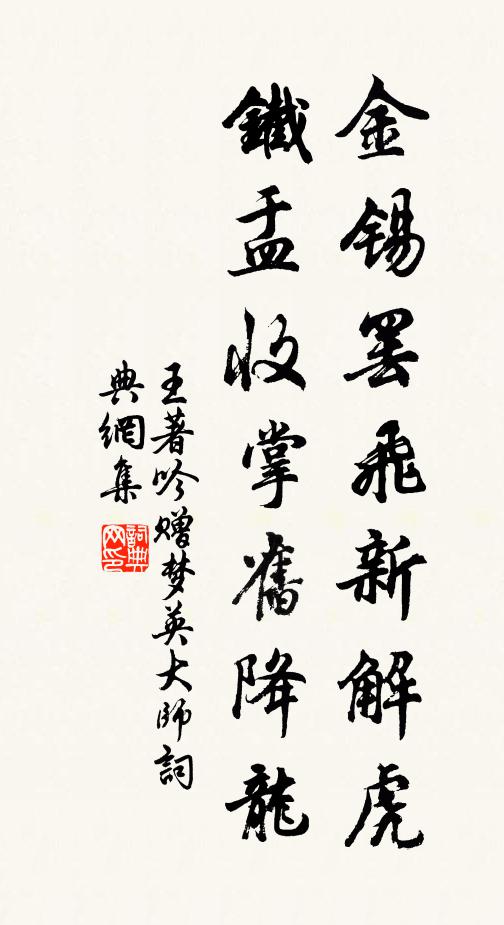 金锡罢飛新解虎
鐵盂收掌舊降龍
王著吟赠梦英大師詞
典網集
詞典
网印